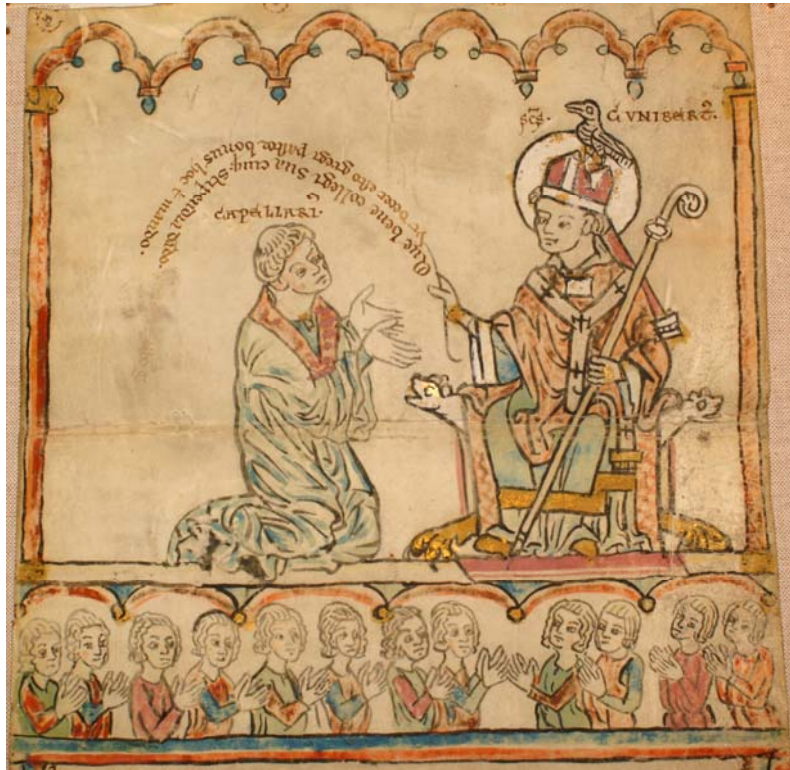 scs. CUNIBERT᾿
CAPELLARI᾿
Que bene collegi Sua cuiq; Stipendia dabo.
Vt decet esto gregi pastor bonus hoc t mando.